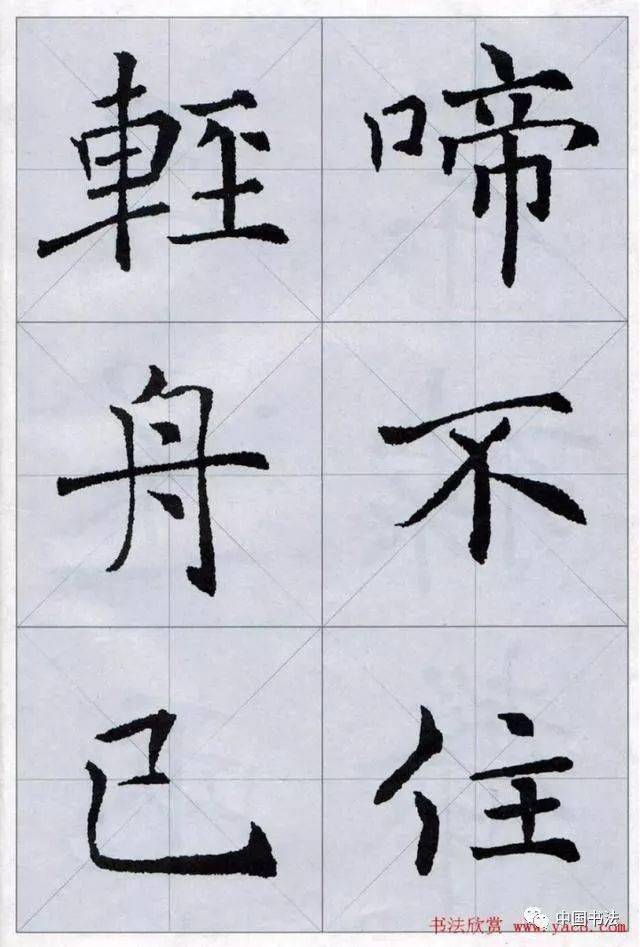 啼不住
輕舟已
中国书法
书法欣赏 www.yac8.com